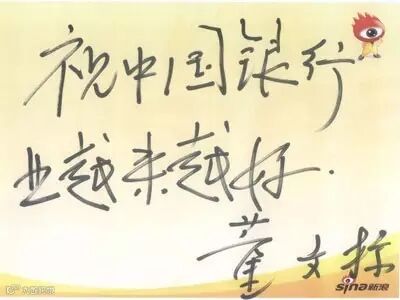 祝中国银行
业越来越好.
董文标
sina新浪